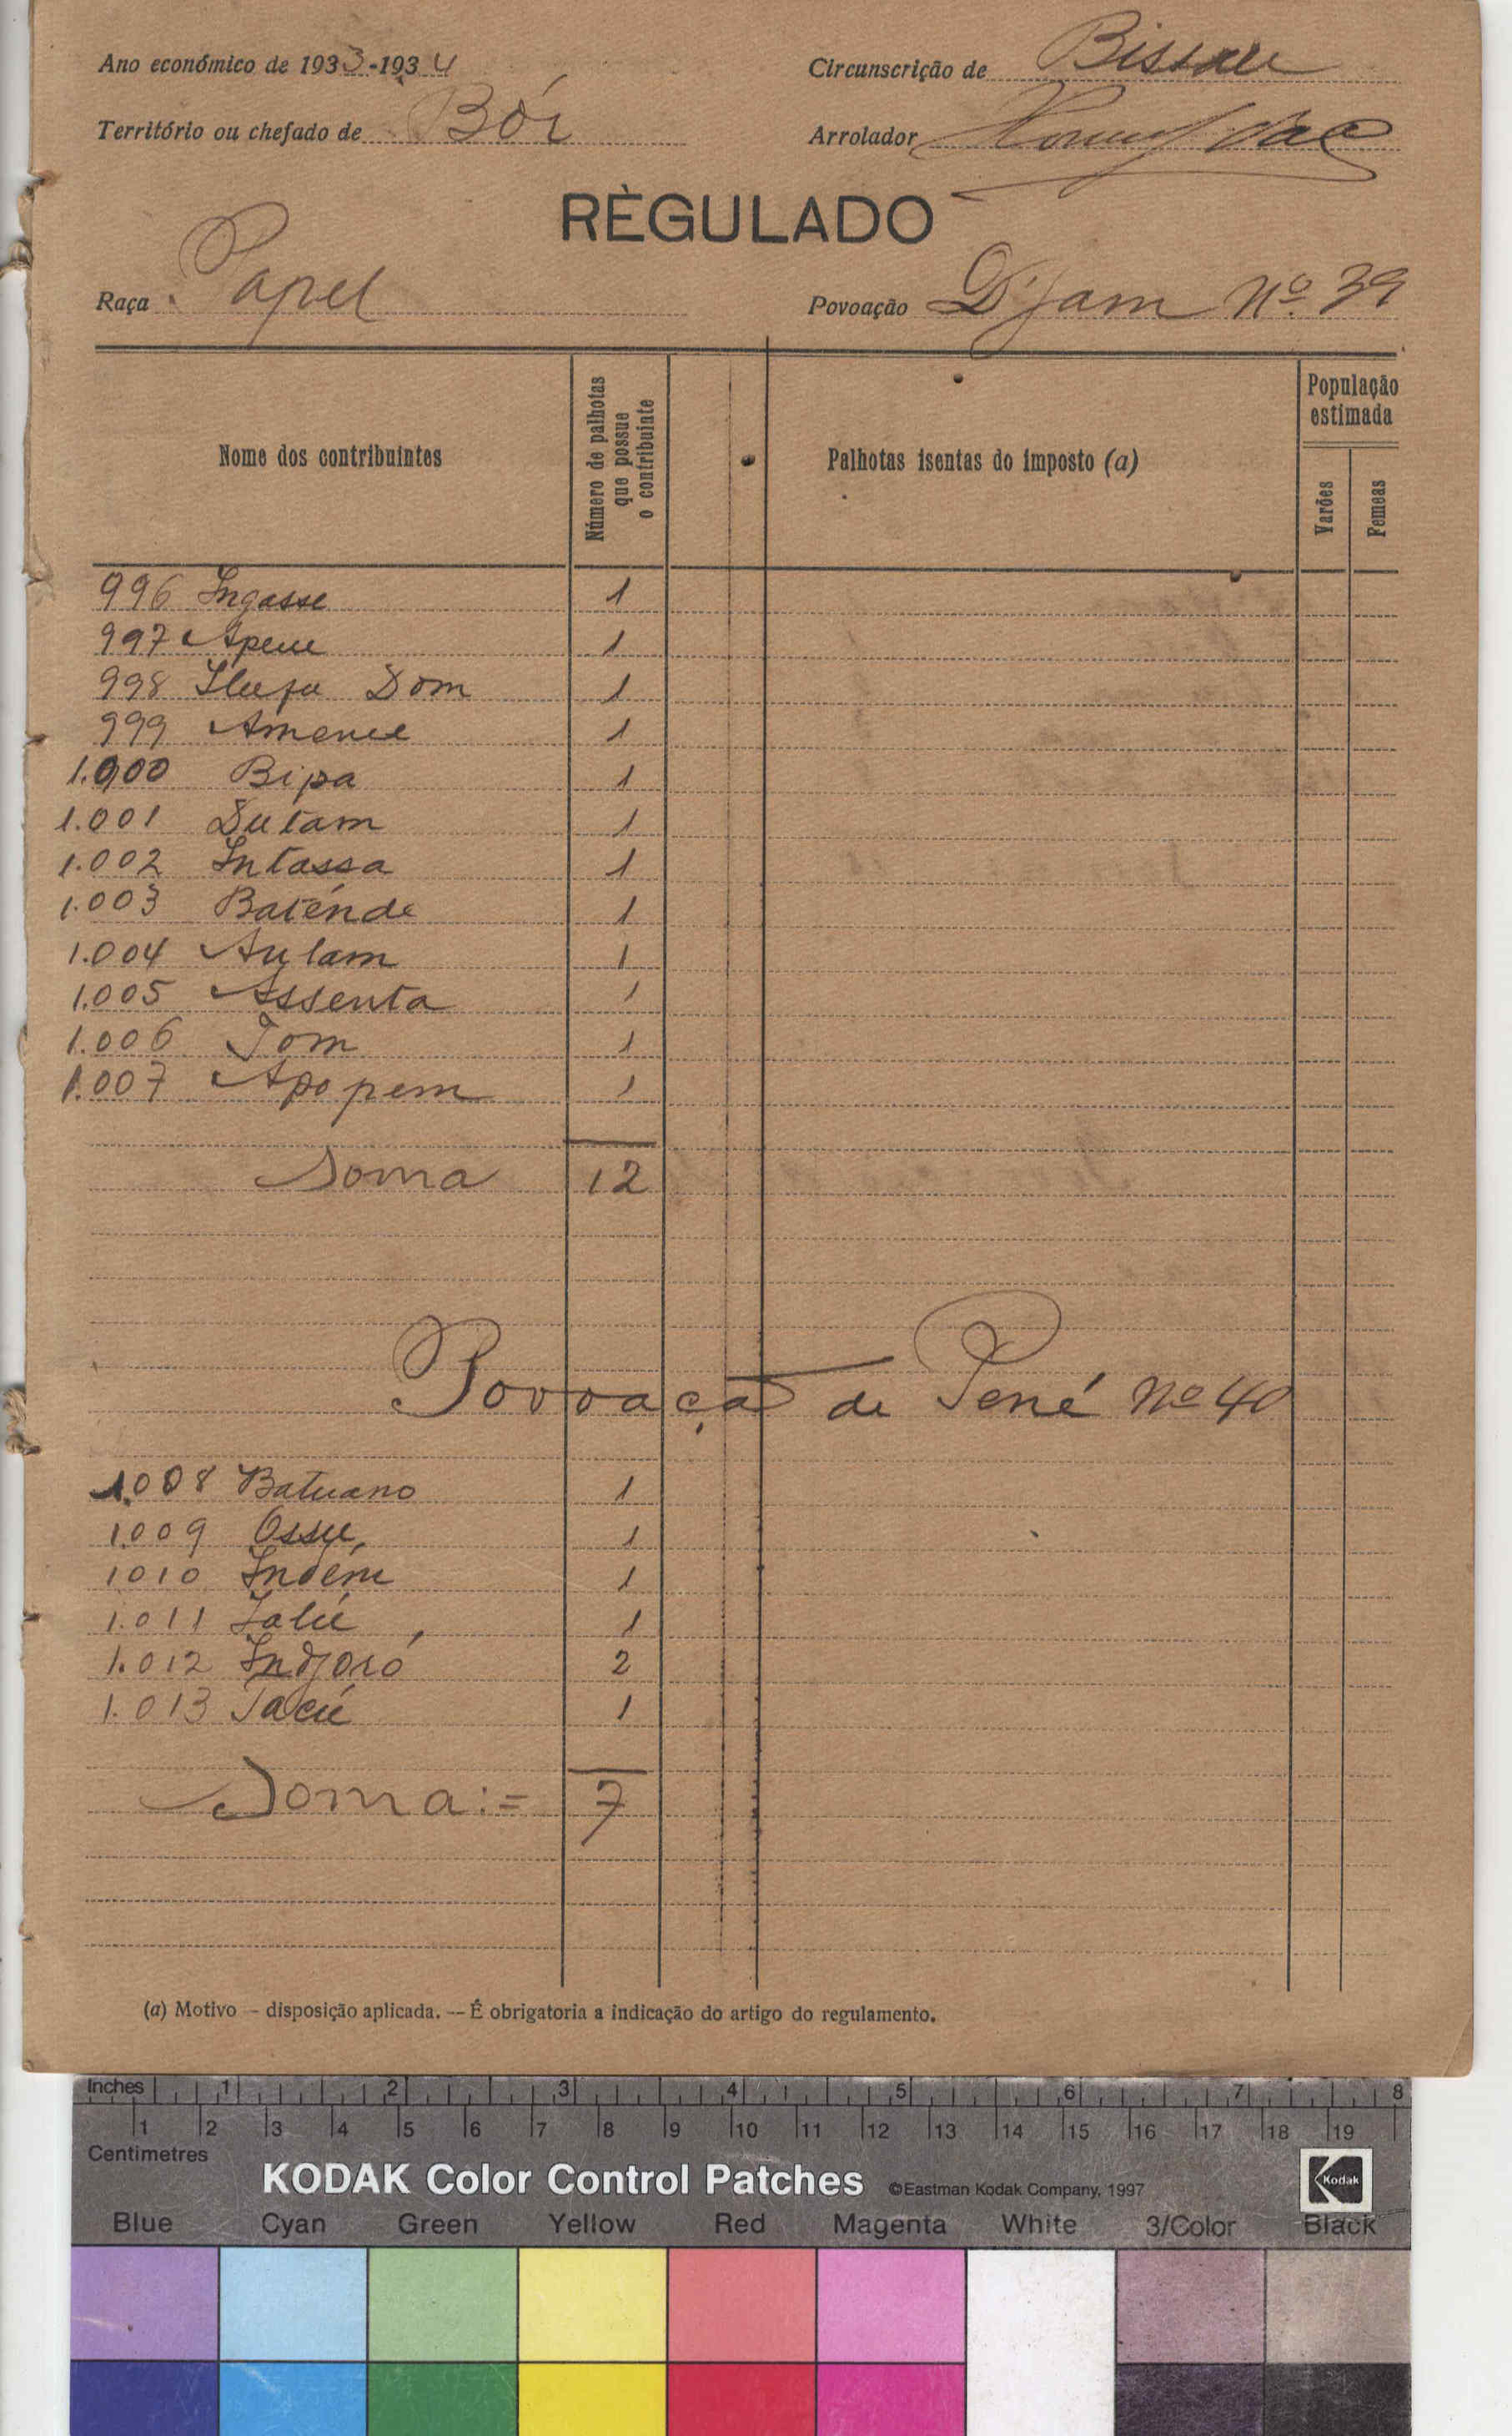 Ano económico de 1933-1934
Circunscrição de Bissau
Território ou chefado de Bór
Arrolador
RÈGULADO
Raça Papel
Povoação D'jam Nº 39
Nome dos contribuintes
Número de palhotas que possue o contribuinte
Palhotas isentas do imposto (a)
População estimada
Varões
Femeas
996 Ingasse 1
997 1
998 Dom 1
999 1
1.000 Bipa 1
1.001 Dutam 1
1.002 Intassa 1
1.003 Baténde 1
1.004 Aulam 1
1.005 Assenta 1
1.006 Tom 1
1.007 Apopem 1
Soma 12
Povoação de Pené Nº 40
1.008 Batuano 1
1.009 1
1010 1
1.011 1
1.012 Indjoró 2
1.013 1
Soma:= 7
(a) Motivo — disposição aplicada. — É obrigatoria a indicação do artigo do regulamento.
Inches 1 2 3 4 5 6 7 8
1 2 3 4 5 6 7 8 9 10 11 12 13 14 15 16 17 18 19
Centimetres
KODAK Color Control Patches ©Eastman Kodak Company, 1997 Kodak
Blue Cyan Green Yellow Red Magenta White 3/Color Black